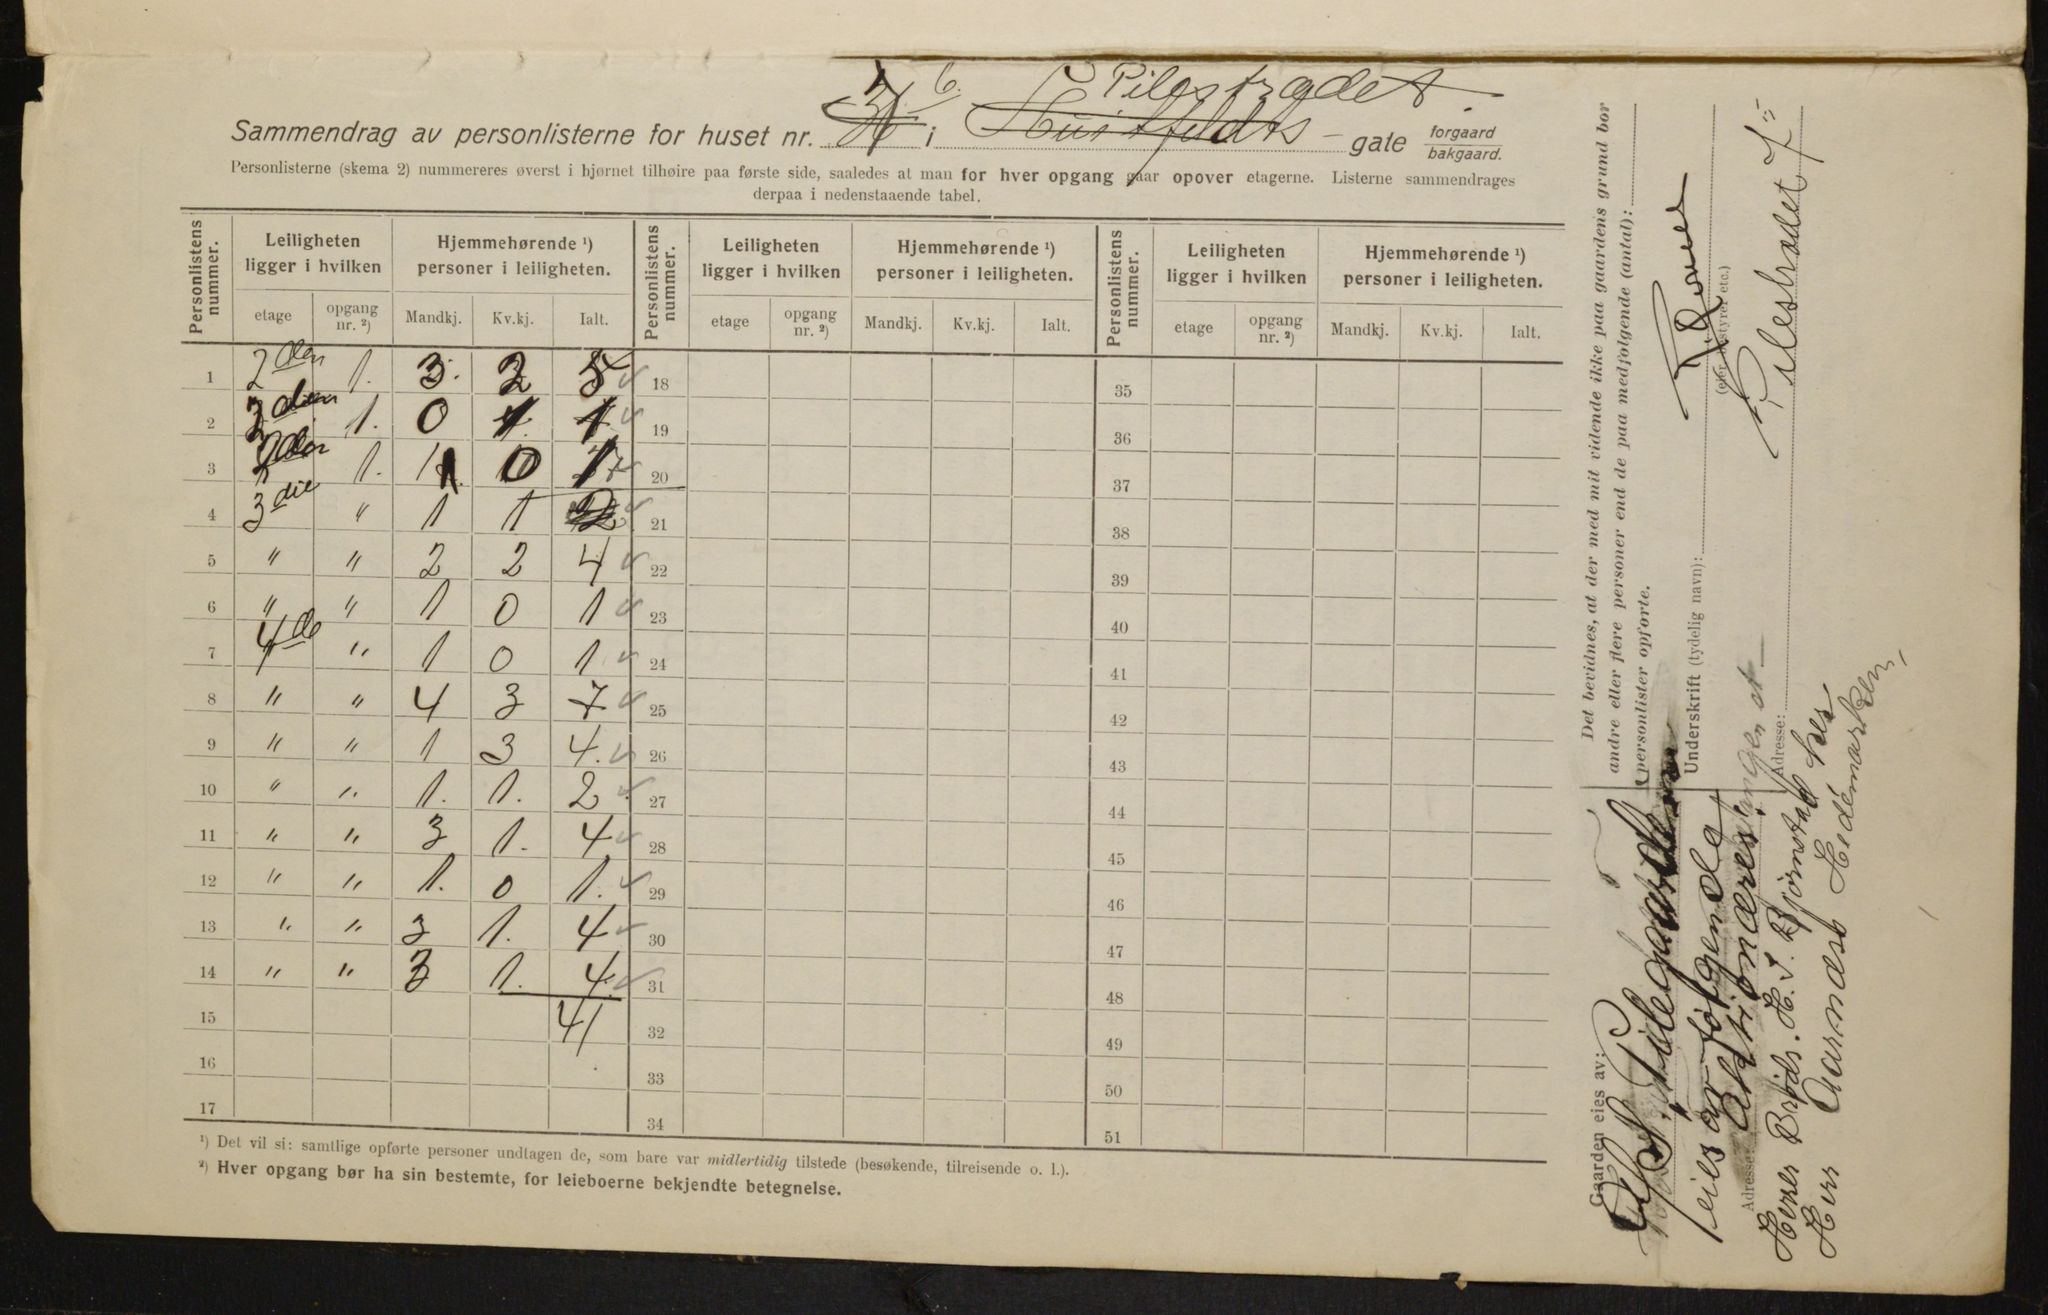 6. Pilestrædet.
Sammendrag av personlisterne for huset nr. i Huitfeldts - gate forgaard bakgaard.
Personlisterne (skema 2) nummereres øverst i hjørnet tilhøire paa første side, saaledes at man for hver opgang gaar opover etagerne. Listerne sammendrages
derpaa i nedenstaaende tabel.
Personlistens nummer. Leiligheten ligger i hvilken Hjemmehørende ¹) personer i leiligheten. Personlistens nummer. Leiligheten ligger i hvilken Hjemmehørende ¹) personer i leiligheten. Personlistens nummer. Leiligheten ligger i hvilken Hjemmehørende ¹) personer i leiligheten.
etage opgang nr. ²) Mandkj. Kv.kj. Ialt. etage opgang nr. ²) Mandkj. Kv.kj. Ialt. etage opgang nr. ²) Mandkj. Kv.kj. Ialt.
1 2den 1. 3. 2 5 18 35
2 1. 0 1. 1 19 36
3 1. 1 0 1 20 37
4 3die " 1 1 2 21 38
5 " " 2 2 4 22 39
6 " " 1 0 1 23 40
7 4de " 1 0 1 24 41
8 " " 4 3 7 25 42
9 " " 1 3 4. 26 43
10 " " 1. 1. 2 27 44
11 " " 3 1. 4 28 45
12 " " 1. 0 1. 29 46
13 " " 3 1. 4 30 47
14 " " 3 1. 4. 31 48
15 41 32 49
16 33 50
17 34 51
¹) Det vil si: samtlige opførte personer undtagen de, som bare var midlertidig tilstede (besøkende, tilreisende o. l.).
²) Hver opgang bør ha sin bestemte, for leieboerne bekjendte betegnelse.
Det bevidnes, at der med mit vidende ikke paa gaardens grund bor
andre eller flere personer end de paa medfølgende (antal):
personlister opførte.
Underskrift (tydelig navn):
(eier, bestyrer etc.)
Adresse: Pilestrædet 7
Gaarden eies av:
eies av følgende
Adresse: aktionærer
Herr Brøds. H. S. Bjørnstad
Herr Aarnæs Hedemarken